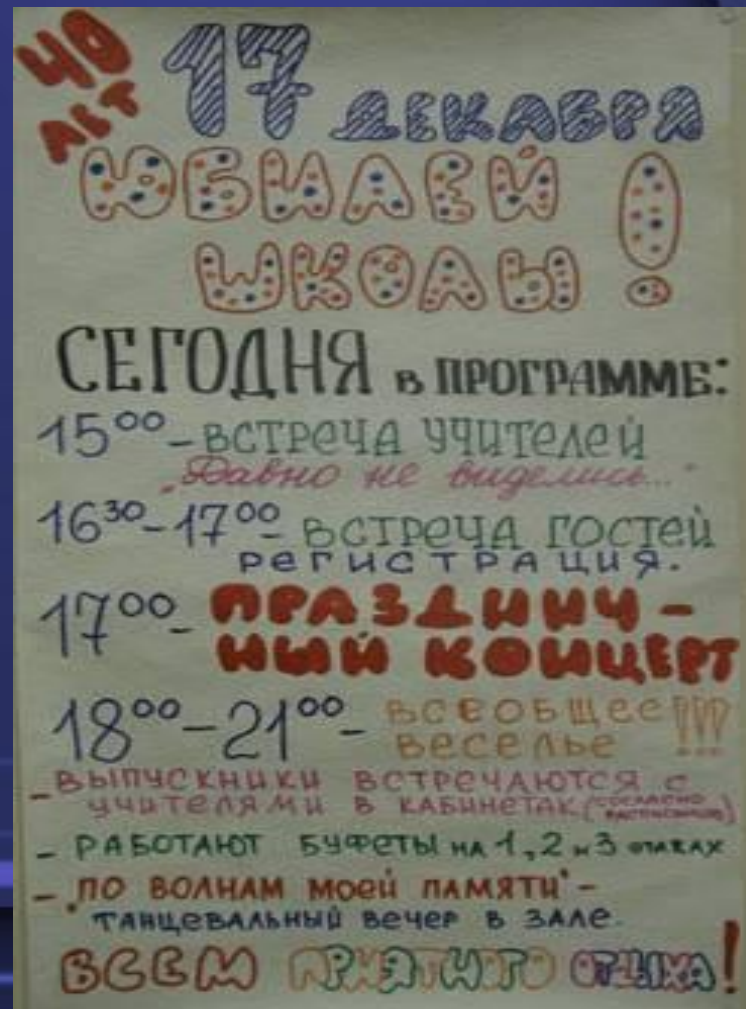 40
ЛЕТ
17 ДЕКАБРЯ
ЮБИЛЕЙ
ШКОЛЫ!
СЕГОДНЯ в ПРОГРАММЕ:
15⁰⁰ – ВСТРЕЧА УЧИТЕЛЕЙ
„Давно не виделись..."
16³⁰ – 17⁰⁰ – ВСТРЕЧА ГОСТЕЙ
РЕГИСТРАЦИЯ.
17⁰⁰ – ПРАЗДНИЧ –
НЫЙ КОНЦЕРТ
18⁰⁰ – 21⁰⁰ – ВСЕОБЩЕЕ
ВЕСЕЛЬЕ !!!
– ВЫПУСКНИКИ ВСТРЕЧАЮТСЯ С
УЧИТЕЛЯМИ В КАБИНЕТАХ (СОГЛАСНО
РАСПИСАНИЮ)
– РАБОТАЮТ БУФЕТЫ НА 1, 2 и 3 ЭТАЖАХ
– „ПО ВОЛНАМ МОЕЙ ПАМЯТИ" –
ТАНЦЕВАЛЬНЫЙ ВЕЧЕР В ЗАЛЕ.
ВСЕМ ПРИЯТНОГО ОТДЫХА!